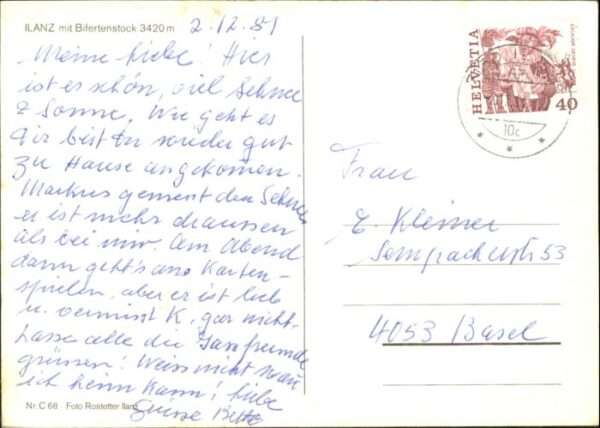 ILANZ mit Bifertenstock 3420 m
2.12.81
Meine Liebe! Hier
ist es schön, viel Schnee
& Sonne. Wie geht es
Dir bist Du wieder gut
zu Hause angekomen.
Markus geniesst den Schnee
er ist mehr draussen
als bei mir. Am Abend
dann geht's ans Karten-
spielen, aber er ist lieb
u. vermisst K. gar nicht.
Lasse alle die Jassfreunde
grüssen! Weiss nicht wan
ich heim kann! Liebe
Grüsse
Nr. C 68 Foto Rostetter Ilanz
HELVETIA
40
10c
Frau
E. Kleiner
Sempacherstr 53
4053 Basel